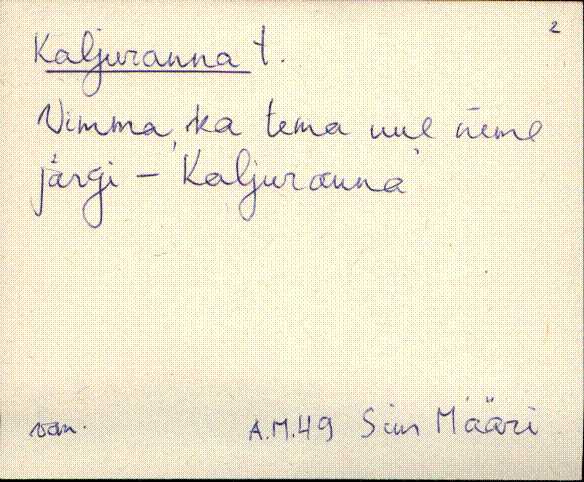 2
Kaljuranna t.
Vimma, ka tema uue nime
järgi – 'Kaljuranna'
van. A.M.49 Siim Määri